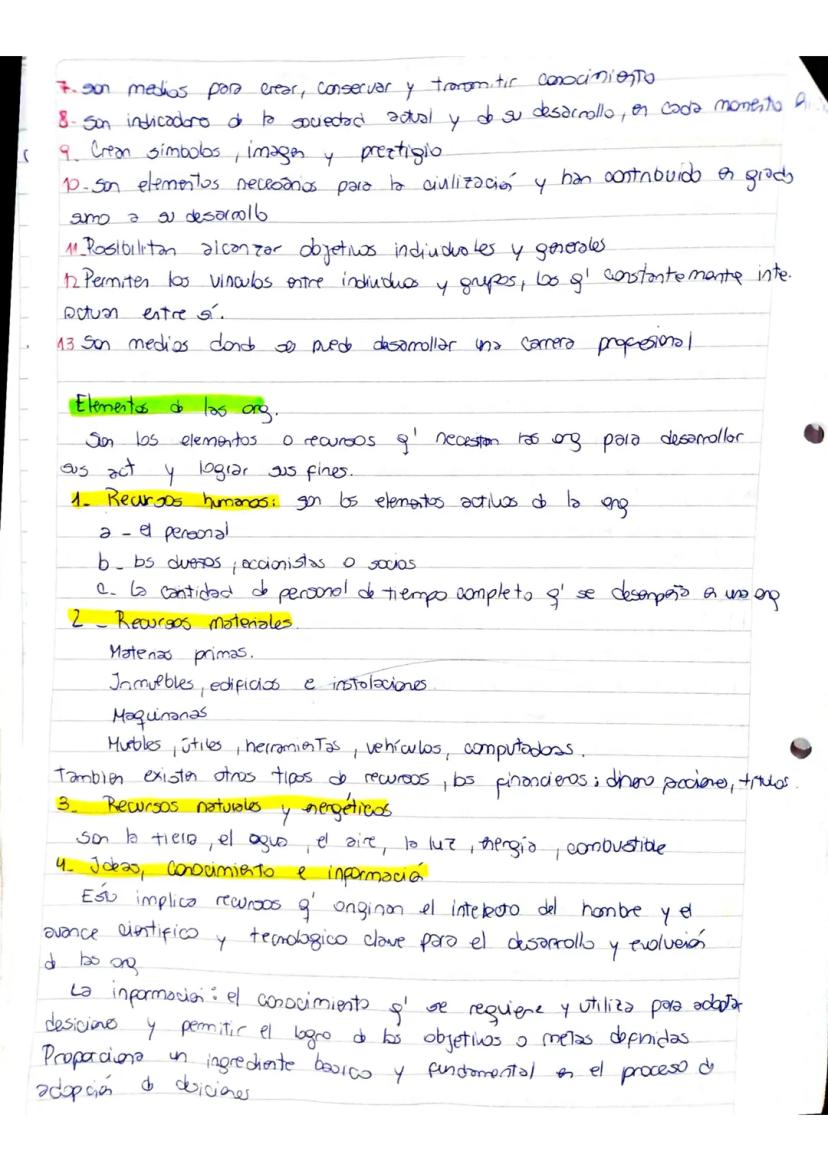 7. son medios para crear, conservar y transmitir conocimiento
8- Son indicadoro d la sociedad actual y d su desarrollo, en cada momento
9. Crean símbolos, imagen y preztigio
10- Son elementos necesarios para la civilización y han contribuido en grado
sumo a su desarrollo
11. Posibilitan alcanzar objetivos individuales y generales
12 Permiten los vinculos entre individuos y grupos, los q' constantemente inte.
ractuan entre sí.
13 Son medios dond se pued desarrollar una carrera profesional
Elementos d las org.
Son los elementos o recursos q' necesitan las org para desarrollar
sus act y lograr sus fines.
1- Recursos humanos: son los elementos activos d la org
a - el personal
b - los dueños, accionistas o socios
c - La cantidad de personal de tiempo completo q' se desempeña en una org
2 - Recursos materiales.
Materias primas.
Inmuebles, edificios e instalaciones
Maquinarias
Mubles, útiles, herramientas, vehículos, computadoras.
Tambien existen otros tipos de recursos, los financieros: dinero acciones, titulos.
3- Recursos naturales y energéticos
Son la tierra, el agua, el aire, la luz, energía, combustible
4- Ideas, conocimiento e información
Esto implica recursos q' originan el intelecto del hombre y el
avance cientifico y tecnologico clave para el desarrollo y evolución
d las org
La informacion: el conocimiento q' se requiere y utiliza para adoptar
desiciones y permitir el logro d los objetivos o metas definidas
Proporciona un ingrediente basico y fundamental en el proceso d
adopción d deciciones